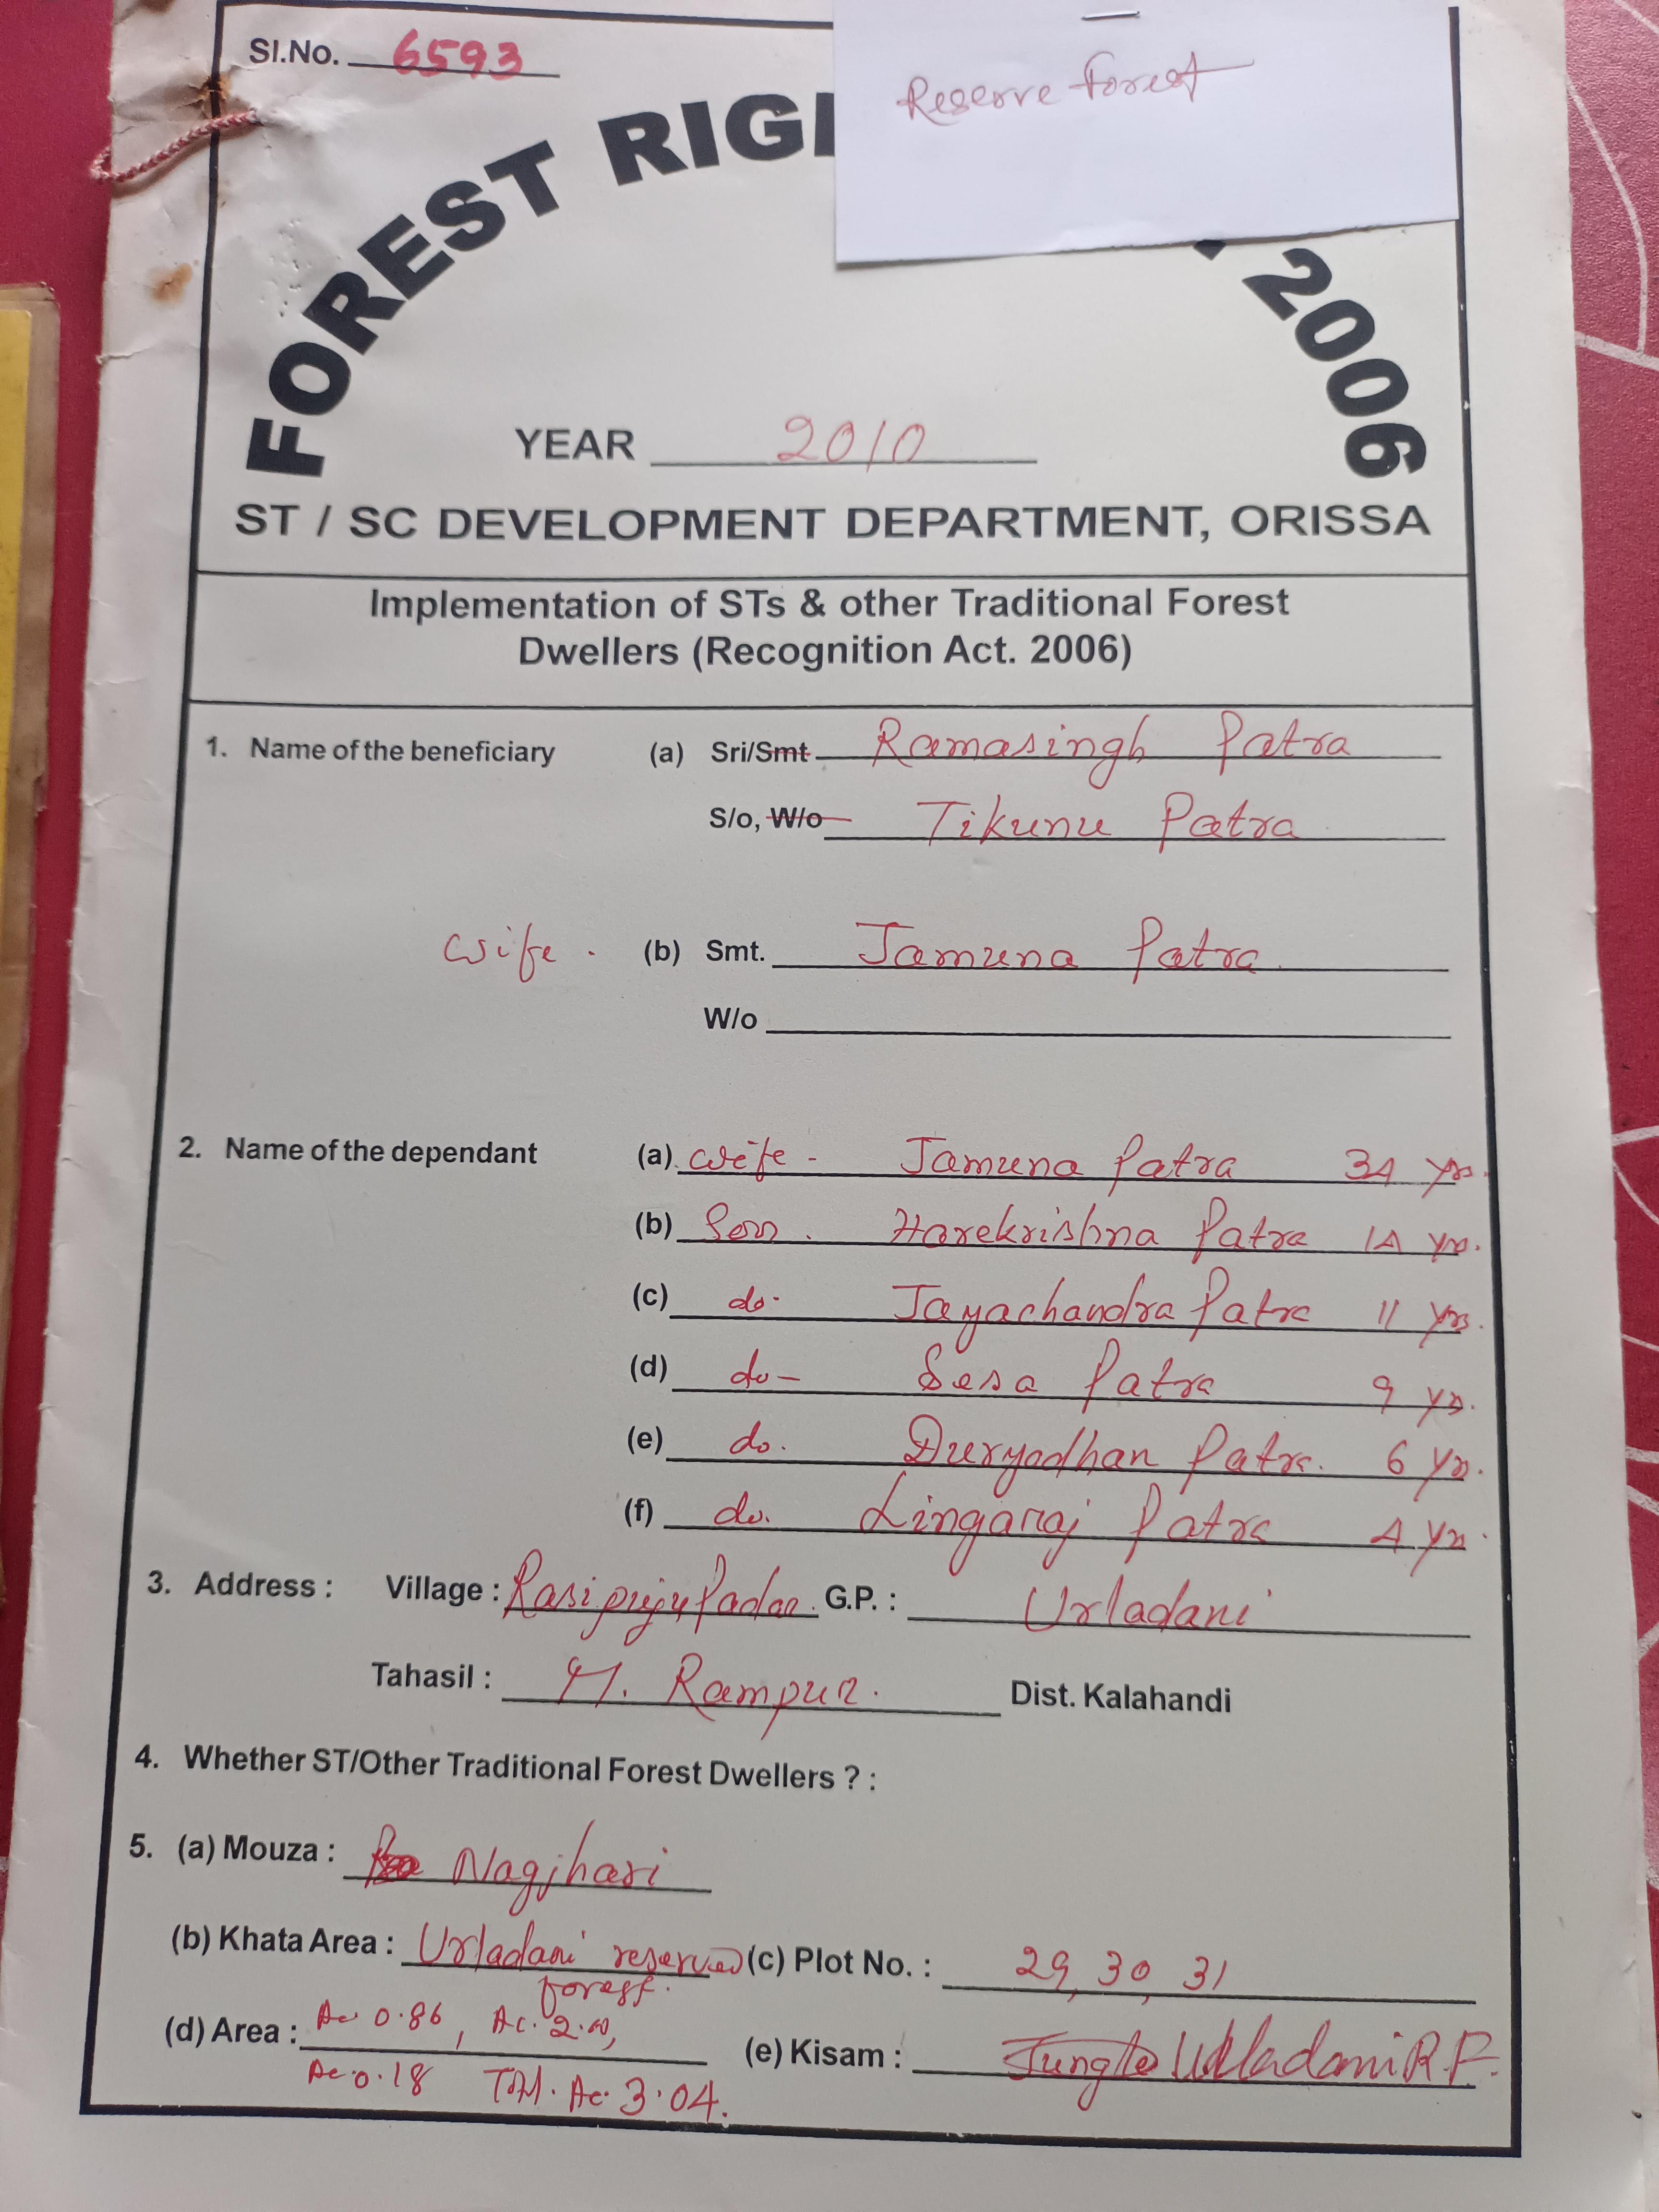 Sl.No. 6593
Reserve Forest
FOREST RIGH 2006
YEAR 2010
ST / SC DEVELOPMENT DEPARTMENT, ORISSA
Implementation of STs & other Traditional Forest
Dwellers (Recognition Act. 2006)
1. Name of the beneficiary (a) Sri/Smt Ramasingh Patra
S/o, W/o Tikunu Patra
wife. (b) Smt. Jamuna Patra
W/o
2. Name of the dependant (a) wife - Jamuna Patra 34 yrs.
(b) Son. Harekrishna Patra 14 yrs.
(c) do. Jayachandra Patra 11 yrs.
(d) do- Sesa Patra 9 yrs.
(e) do. Duryodhan Patra. 6 yrs.
(f) do. Lingaraj Patra 4 yrs.
3. Address : Village : G.P. : Urladani
Tahasil : M. Rampur. Dist. Kalahandi
4. Whether ST/Other Traditional Forest Dwellers ? :
5. (a) Mouza : Nagjhari
(b) Khata Area : Urladani reserved (c) Plot No. : 29, 30, 31
forest.
(d) Area : Ac 0.86, Ac. 2.00, (e) Kisam : Jungle Urladani R.F.
Ac 0.18 Total. Ac. 3.04.